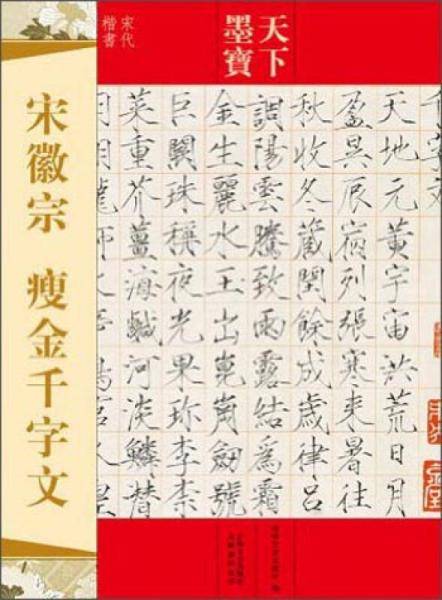 天下
墨寶
宋代
楷書
宋徽宗 瘦金千字文
千字文
天地元黃宇宙洪荒日月
盈昃辰宿列張寒来暑往
秋收冬藏閏餘成歲律呂
調陽雲騰致雨露結為霜
金生麗水玉出崑崗劍號
巨闕珠稱夜光果珍李柰
菜重芥薑海鹹河淡鱗潛